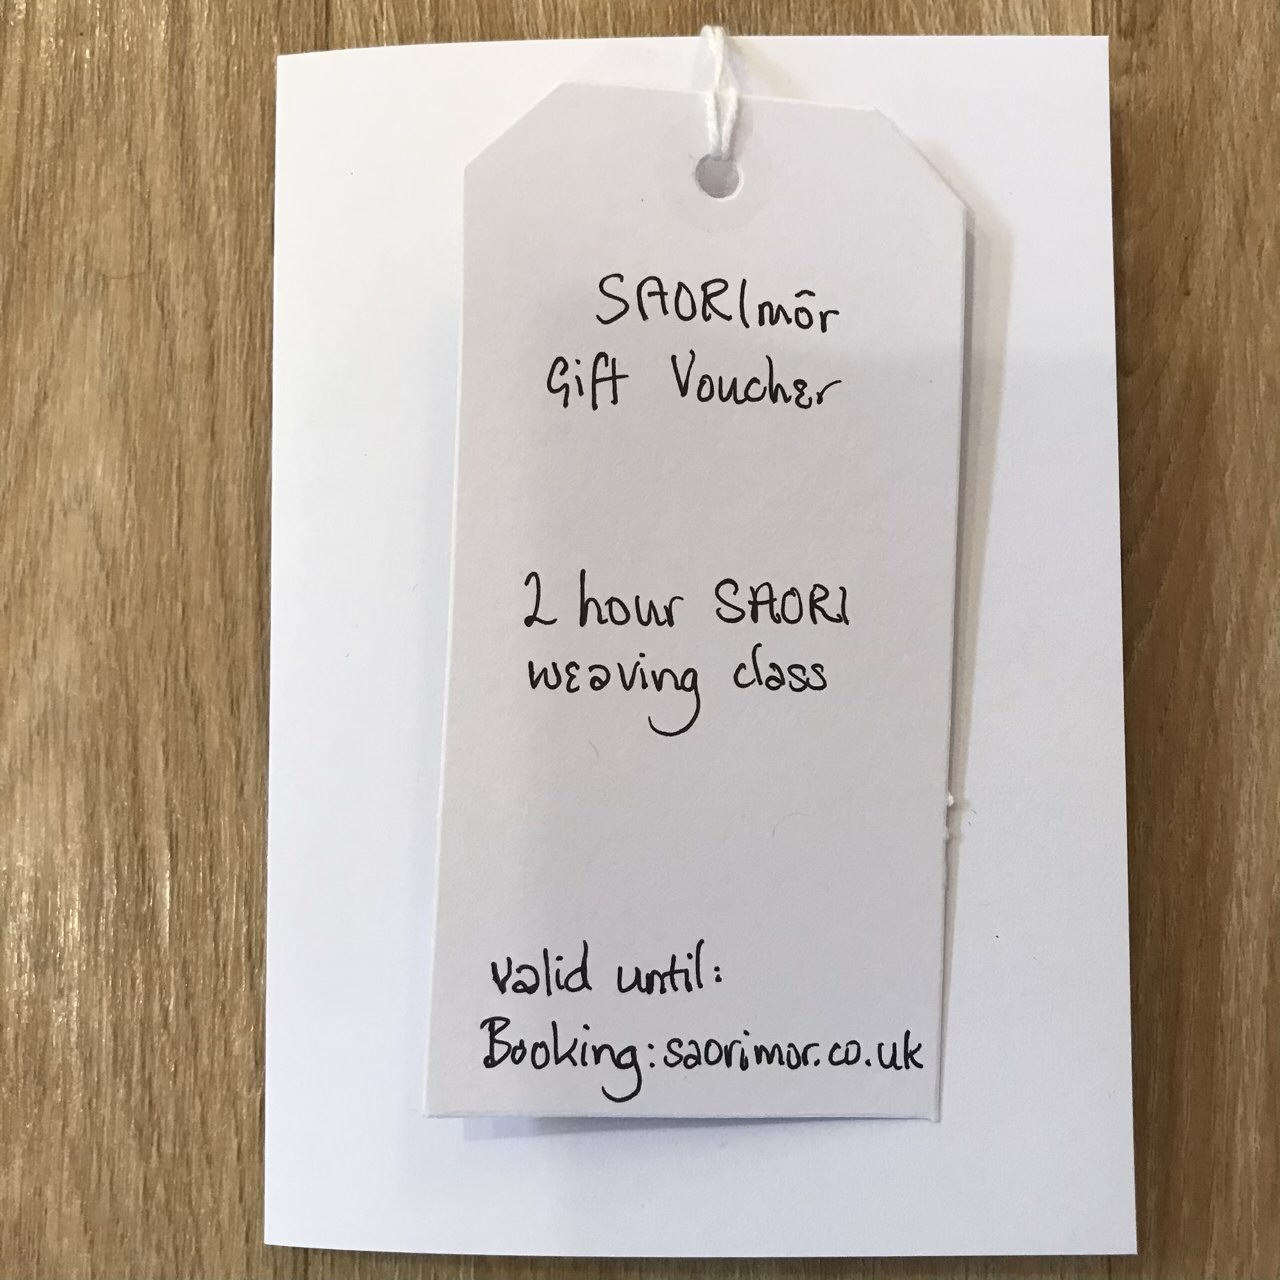 SAORImôr
Gift Voucher
2 hour SAORI
weaving class
valid until:
Booking: saorimor.co.uk